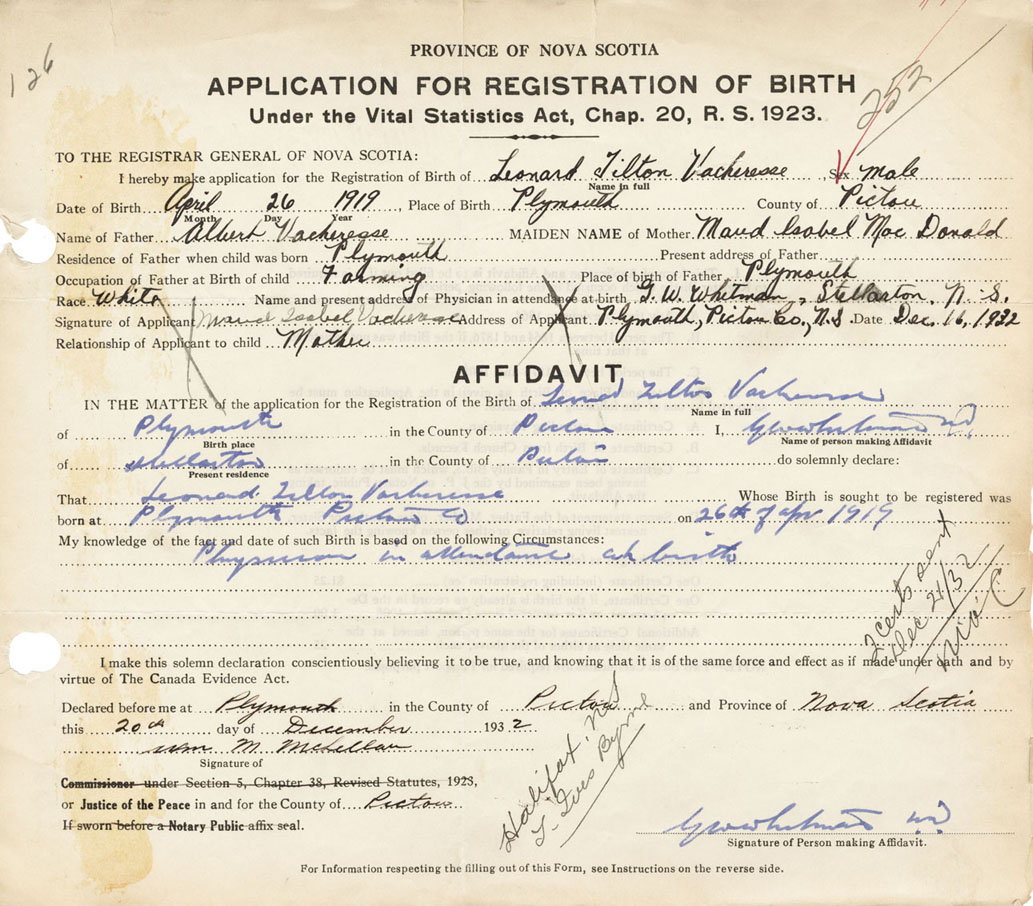 126
PROVINCE OF NOVA SCOTIA
APPLICATION FOR REGISTRATION OF BIRTH
252
Under the Vital Statistics Act, Chap. 20, R. S. 1923.
TO THE REGISTRAR GENERAL OF NOVA SCOTIA:
I hereby make application for the Registration of Birth of Leonard Tilton Vacheresse, Sex male
Name in full
Date of Birth April 26 1919, Place of Birth Plymouth County of Pictou
Month Day Year
Name of Father Albert Vacheresse MAIDEN NAME of Mother Maud Isabel Mac Donald
Residence of Father when child was born Plymouth Present address of Father
Occupation of Father at Birth of child Farming Place of birth of Father Plymouth
Race White Name and present address of Physician in attendance at birth G. W. Whitman, Stellarton, N. S.
Signature of Applicant Maud Isabel Vacheresse Address of Applicant Plymouth, Pictou Co., N.S. Date Dec. 16, 1932
Relationship of Applicant to child Mother
AFFIDAVIT
IN THE MATTER of the application for the Registration of the Birth of Leonard Tilton Vacheresse
Name in full
of Plymouth in the County of Pictou I, GW Whitman MD
Birth place Name of person making Affidavit
of Stellarton in the County of Pictou do solemnly declare:
Present residence
That Leonard Tilton Vacheresse Whose Birth is sought to be registered was
born at Plymouth Pictou Co on 26th of Apr 1919
My knowledge of the fact and date of such Birth is based on the following Circumstances:
Physician in attendance at birth
2 certs sent
Dec 21/32
I make this solemn declaration conscientiously believing it to be true, and knowing that it is of the same force and effect as if made under oath and by
virtue of The Canada Evidence Act.
Declared before me at Plymouth in the County of Pictou and Province of Nova Scotia
this 20th day of December 1932
Wm M. McLellan
Signature of
Commissioner under Section 5, Chapter 38, Revised Statutes, 1923,
or Justice of the Peace in and for the County of Pictou
If sworn before a Notary Public affix seal.
Halifax, NS
GW Whitman MD
Signature of Person making Affidavit.
For Information respecting the filling out of this Form, see Instructions on the reverse side.